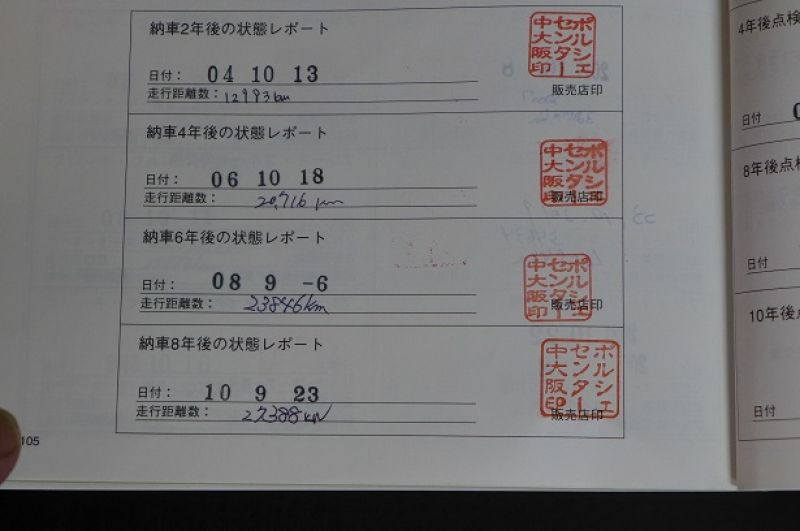 納車2年後の状態レポート
ポルシェ
センター
中大阪印
日付： 04 10 13
走行距離数： 12993km
販売店印
納車4年後の状態レポート
ポルシェ
センター
中大阪印
日付： 06 10 18
走行距離数： 20,716 km
販売店印
納車6年後の状態レポート
ポルシェ
センター
中大阪印
日付： 08 9 -6
走行距離数： 23846km
販売店印
納車8年後の状態レポート
ポルシェ
センター
中大阪印
日付： 10 9 23
走行距離数： 27388km
販売店印
105
4年後点検
日付 0
8年後点検
日付
10年後点
日付